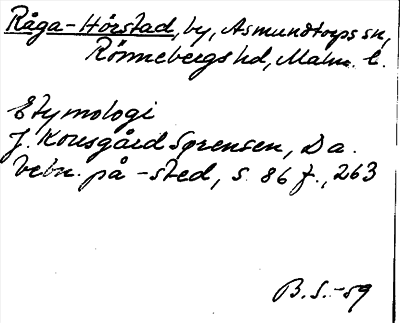 Råga-Hörstad, by, Asmundtorps sn,
Rönnebergs hd, Malm. l.
Etymologi
J. Kousgård Sørensen, Da.
bebn. på -sted, s. 86 f., 263
B. S. -59